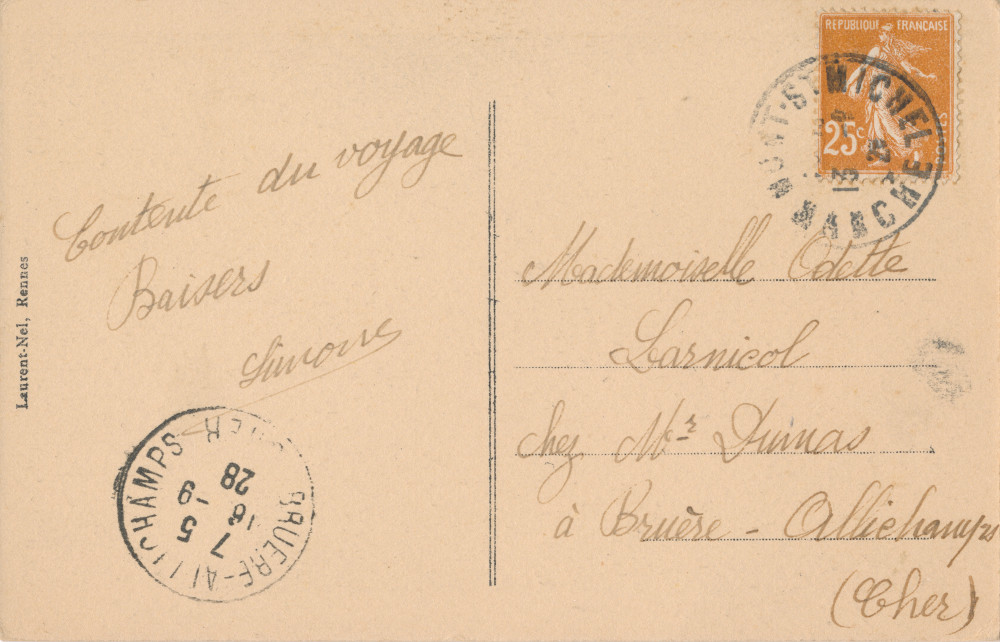 Contente du voyage
Baisers
Simone
Laurent-Nel, Rennes
RÉPUBLIQUE FRANÇAISE
25c
MONT-ST MICHEL
MANCHE
13
Mademoiselle Odette
Larnicol
chez Mr Dumas
à Bruère-Allichamps
(Cher)
BRUERE-ALLICHAMPS
CHER
7
16
5 -9
28